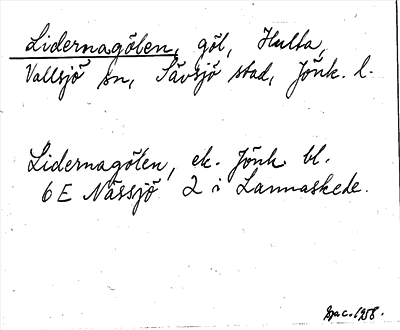 Lidernagölen, göl, Hulta,
Vallsjö sn, Sävsjö stad, Jönk. l.
Lidernagölen, ek. Jönk bl.
6E Nässjö 2 i Lannaskede.
1958.